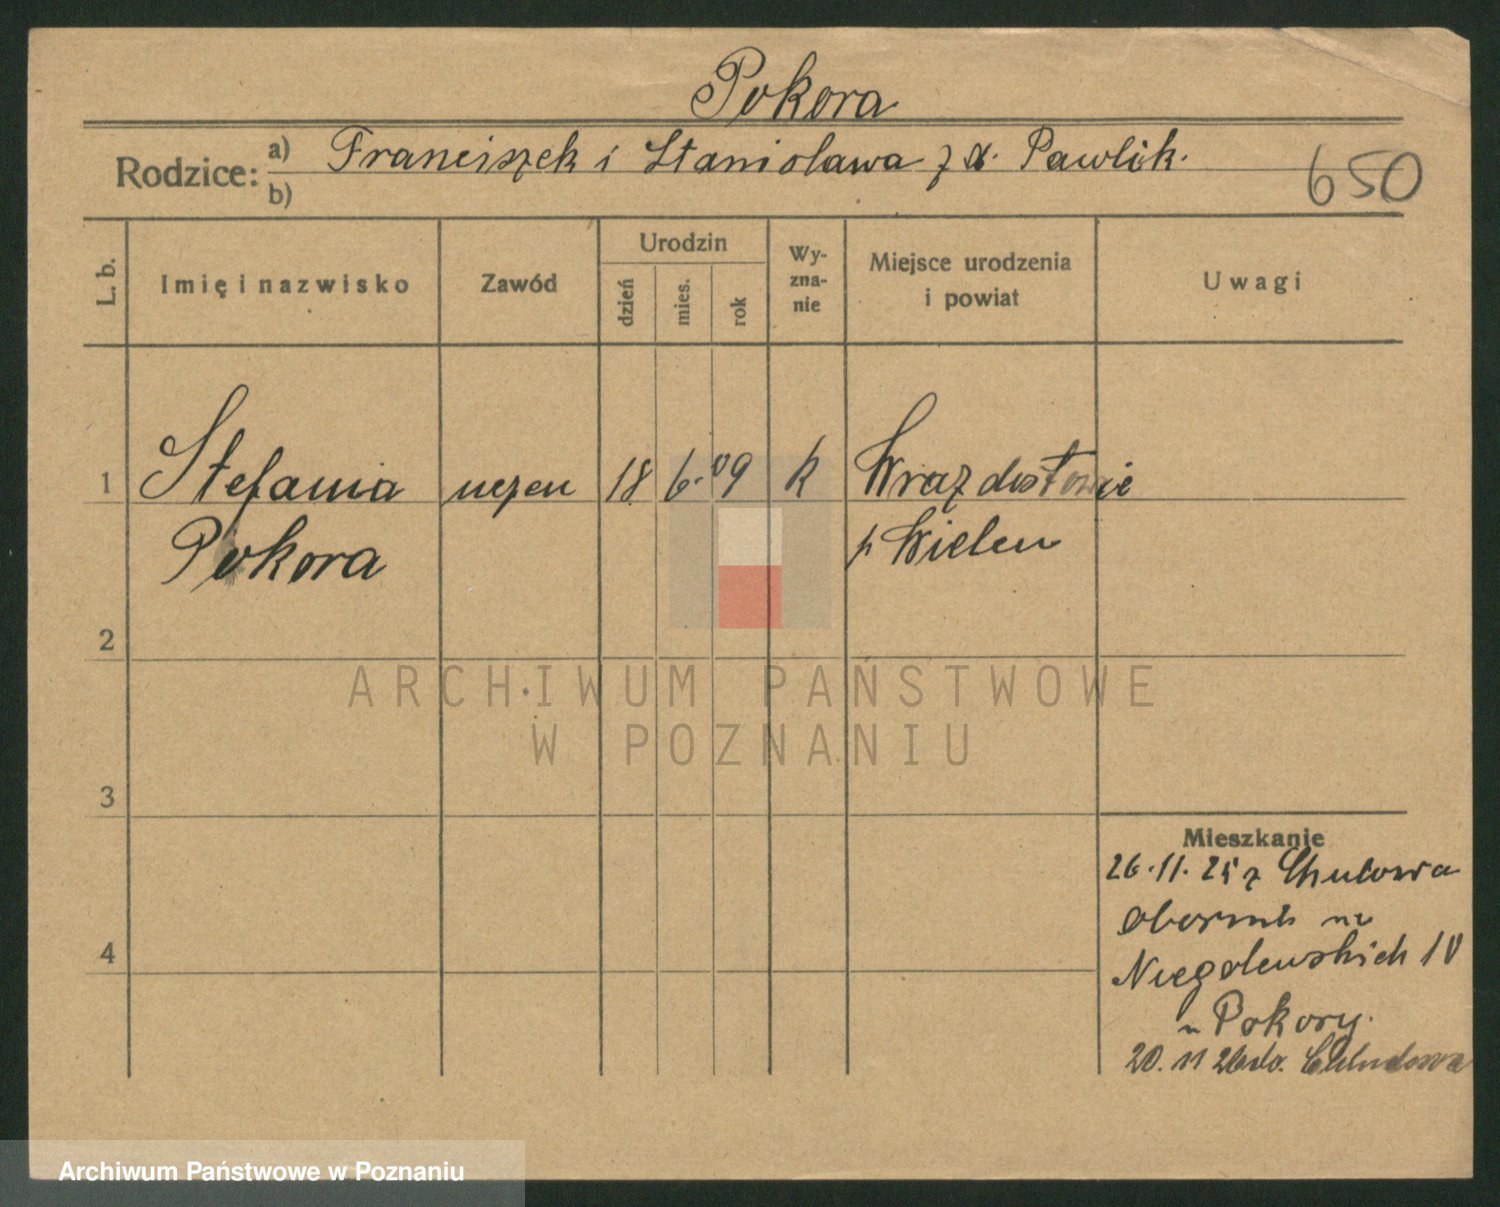 Pokora
Rodzice: a) Franciszek i Stanisława z d. Pawlik.
b)
650
L. b. Imię i nazwisko Zawód Urodzin dzień mies. rok Wy-zna-nie Miejsce urodzenia i powiat Uwagi
1 Stefania uczen 18 6. 09 k
Pokora p Wielen
2
ARCHIWUM PAŃSTWOWE
W POZNANIU
3
Mieszkanie
26.11.25 z
4
Niegolewskich 10
u Pokory.
20. 11 26 do. Chludowa
Archiwum Państwowe w Poznaniu